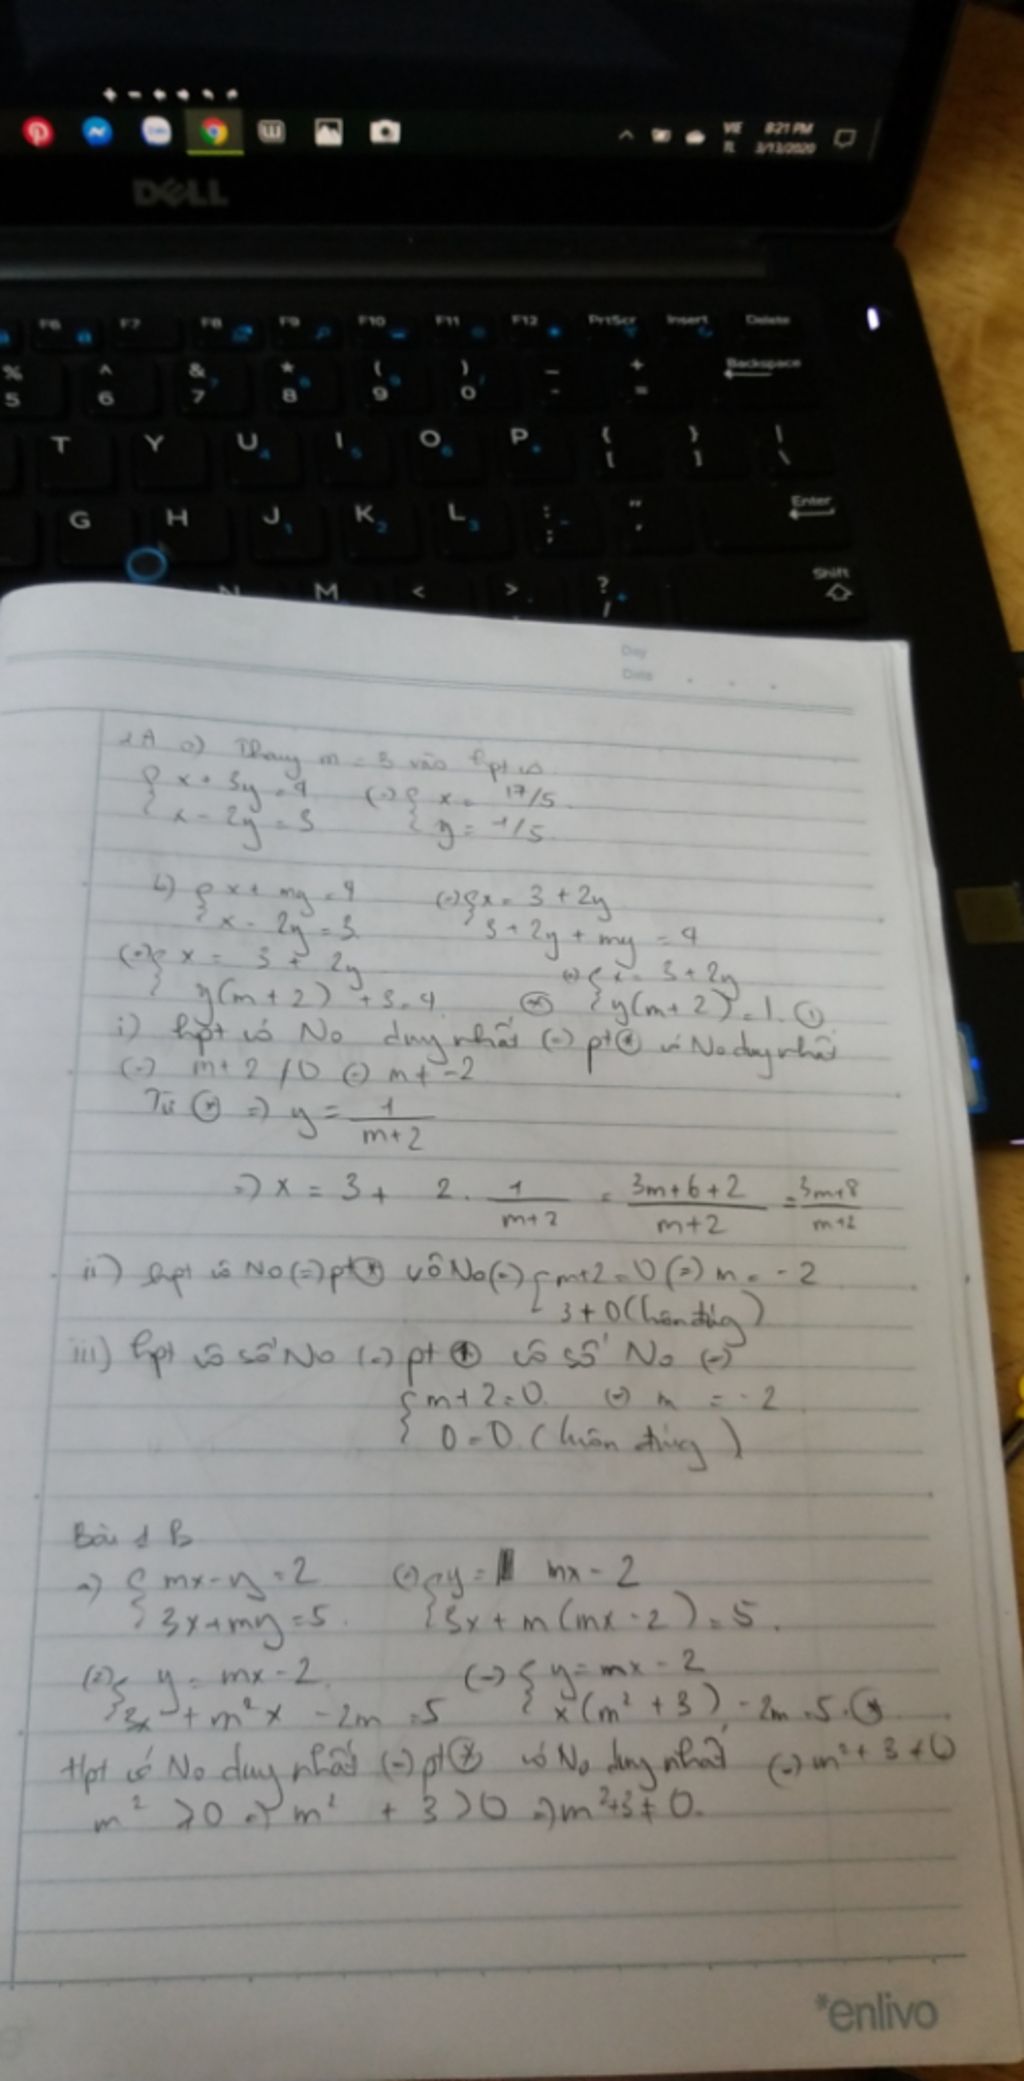 VIE
TL
8:21 PM
3/13/2020
DELL
F6 F7 F8 F9 F10 F11 F12 PrtScr Insert Delete
% 5 ^ 6 & 7 * 8 ( 9 ) 0 _ - + = Backspace
T Y U 4 I 5 O 6 P * { [ } ] | \
G H J 1 K 2 L 3 : ; " ' Enter
N M < > ? / Shift
Day
Date
1A a) Thay m = 3 vào hpt có
{ x + 3y = 4 (=) { x = 17/5
{ x - 2y = 3 { y = 1/5
b) { x + my = 4 (=) { x = 3 + 2y
{ x - 2y = 3 { 3 + 2y + my = 4
(=) { x = 3 + 2y (=) { x = 3 + 2y
{ y(m+2) + 3 = 4 { y(m+2) = 1
i) hpt có No duy nhất (=) pt (*) có No duy nhất
(=) m + 2 ≠ 0 (=) m ≠ -2
Từ (*) => y = 1/(m+2)
=> x = 3 + 2 . 1/(m+2) = (3m+6+2)/(m+2) = (3m+8)/(m+2)
ii) hpt vô No (=) pt (*) vô No (=) { m+2 = 0 (=) m = -2
{ 3 ≠ 0 (luôn đúng)
iii) hpt vô số No (=) pt vô số No (=)
{ m + 2 = 0 (=) m = -2
{ 0 = 0 (luôn đúng)
Bài 1B
a) { mx - y = 2 (=) { y = mx - 2
{ 3x + my = 5 { 3x + m(mx - 2) = 5
(=) { y = mx - 2 (=) { y = mx - 2
{ 3x + m²x - 2m = 5 { x(m² + 3) - 2m = 5 (*)
Hpt có No duy nhất (=) pt (*) có No duy nhất (=) m² + 3 ≠ 0
m² ≥ 0 => m² + 3 > 0 => m²+3 ≠ 0.
*enlivo